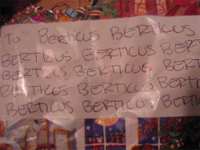 To Berticus Berticus
Berticus Berticus Bert
Berticus Berticus Bert
Berticus Berticus Berti
Berticus Berticus Berti